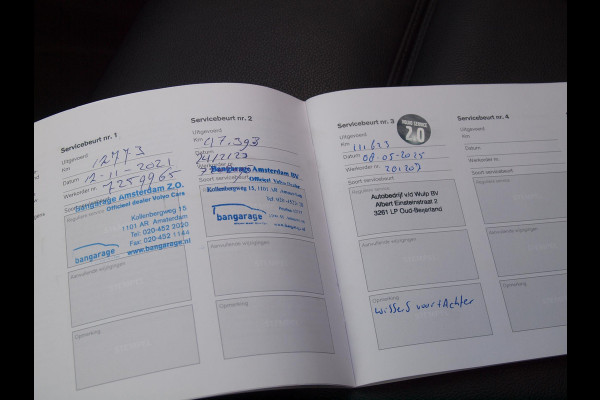 Servicebeurt nr. 1
Uitgevoerd
Km 12773
Datum 12-11-2021
Werkorder nr. 7259965
Soort servicebeurt
Bangarage Amsterdam Z.O.
Officieel dealer Volvo Cars
Reguliere service
Kollenbergweg 15
1101 AR Amsterdam
Tel: 020-452 3030
Fax: 020-452 1144
www.bangarage.nl
bangarage
Aanvullende wijzigingen
Opmerking
Servicebeurt nr. 2
Uitgevoerd
Km 47.393
Datum
Werkorder nr.
Soort servicebeurt
Bangarage Amsterdam BV
Officieel Volvo Dealer
Kollenbergweg 15, 1101 AR Amsterdam
bangarage
Aanvullende wijzigingen
Opmerking
Servicebeurt nr. 3
VOLVO SERVICE
2.0
Uitgevoerd
Km 111.623
Datum 08-05-2025
Werkorder nr. 201207
Soort servicebeurt
Reguliere service
Autobedrijf v/d Wulp BV
Albert Einsteinstraat 2
3261 LP Oud-Beijerland
Aanvullende wijzigingen
Opmerking
wissers voor+Achter
Servicebeurt nr. 4
Uitgevoerd
Km
Datum
Werkorder nr.
Soort servicebeurt
Reguliere service
Aanvullende wijzigingen
Opmerking